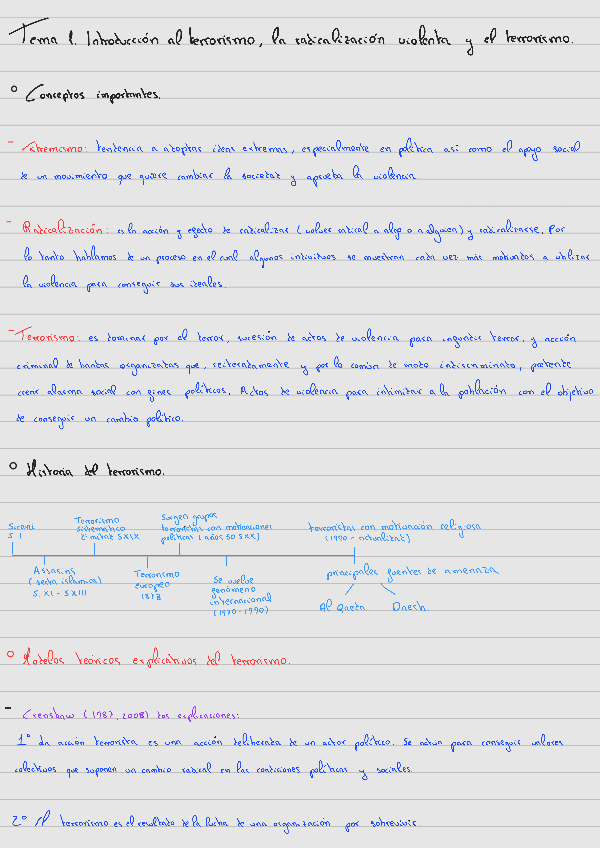 Tema 1. Introducción al terrorismo, la radicalización violenta y el terrorismo.
° Conceptos importantes.
- Extremismo: tendencia a adoptar ideas extremas, especialmente en política así como el apoyo social
de un movimiento que quiere cambiar la sociedad y aprueba la violencia
- Radicalización: es la acción y efecto de radicalizar (volver radical a algo o a alguien) y radicalizarse. Por
lo tanto hablamos de un proceso en el cual algunos individuos se muestran cada vez más motivados a utilizar
la violencia para conseguir sus ideales.
- Terrorismo: es dominar por el terror, sucesión de actos de violencia para infundir terror, y acción
criminal de bandas organizadas que, reiteradamente y por lo común de modo indiscriminado, pretende
crear alarma social con fines políticos. Actos de violencia para intimidar a la población con el objetivo
de conseguir un cambio político.
° Historia del terrorismo.
Sicarii
S I
Assasins
(secta islámica)
S. XI - S XIII
Terrorismo
sistemático
2ª mitad S XIX
Terrorismo
europeo
1878
Surgen grupos
terroristas con motivaciones
políticas (años 50 S XX)
Se vuelve
fenómeno
internacional
(1970-1990)
terroristas con motivación religiosa
(1990 - actualidad)
principales fuentes de amenaza
Al Qaeda Daesh.
° Modelos teóricos explicativos del terrorismo.
- Crenshaw (1987, 2008) dos explicaciones:
1° La acción terrorista es una acción deliberada de un actor político. Se actua para conseguir valores
colectivos que suponen un cambio radical en las condiciones políticas y sociales.
2° El terrorismo es el resultado de la lucha de una organización por sobrevivir.